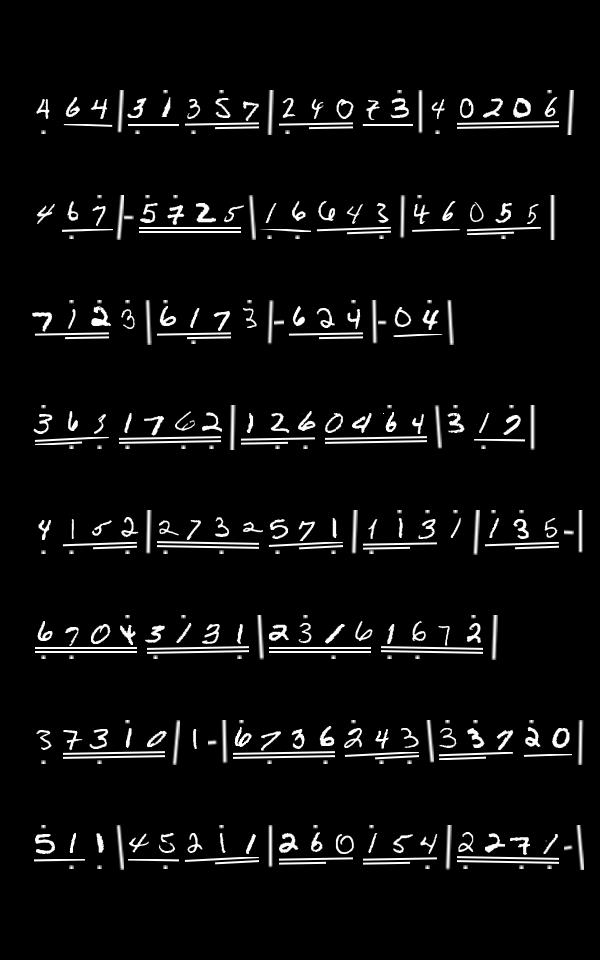 4 6 4 | 3 1 3 5 7 | 2 4 0 7 3 | 4 0 2 0 6 |
4 6 7 | - 5 7 2 5 | 1 6 6 4 3 | 4 6 0 5 5 |
7 1 2 3 | 6 1 7 3 | - 6 2 4 | - 0 4 |
3 6 3 1 7 6 2 | 1 2 6 0 4 6 4 | 3 1 7 |
4 1 5 2 | 2 7 3 2 5 7 1 | 1 1 3 1 | 1 3 5 - |
6 7 0 4 3 1 3 1 | 2 3 1 6 1 6 7 2 |
3 7 3 1 0 | 1 - | 6 7 3 6 2 4 3 | 3 3 7 2 0 |
5 1 1 | 4 5 2 1 1 | 2 6 0 1 5 4 | 2 2 7 1 - |